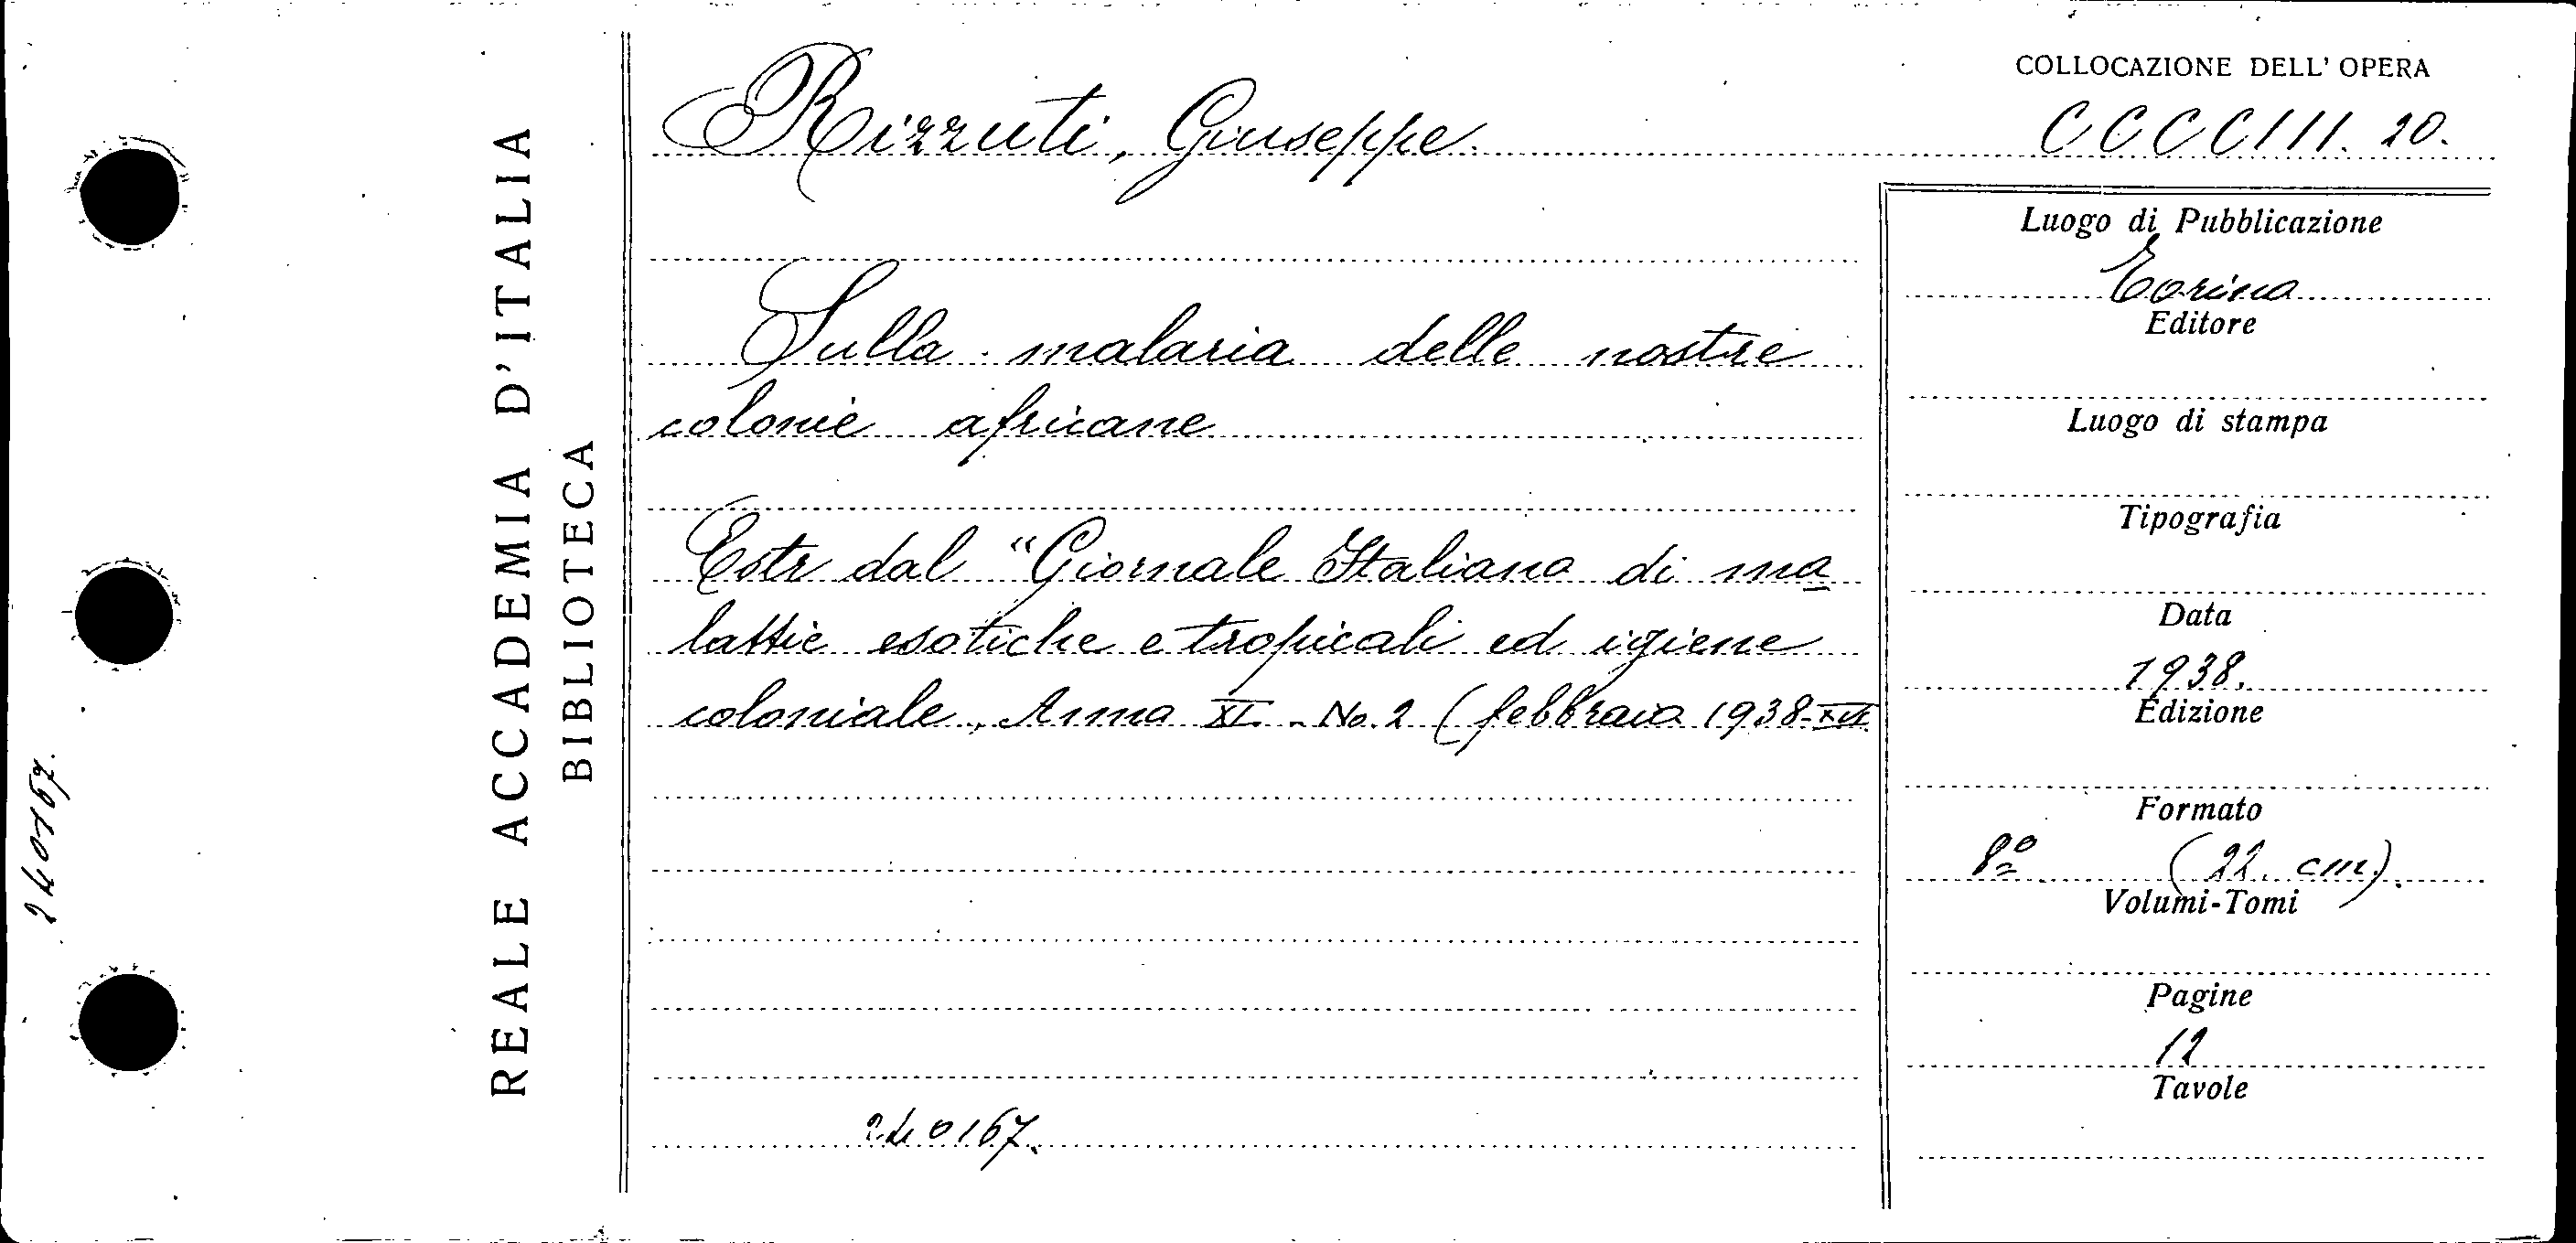 240167.
REALE ACCADEMIA D'ITALIA
BIBLIOTECA
Rizzuti, Giuseppe.
Sulla malaria delle nostre
colonie africane
Estr dal "Giornale Italiano di ma
lattie esotiche e tropicali ed igiene
coloniale, Anno XI - No. 2 (febbraio 1938-XVI
240167.
COLLOCAZIONE DELL' OPERA
CCCCIII. 20.
Luogo di Pubblicazione
Torino
Editore
Luogo di stampa
Tipografia
Data
1938.
Edizione
Formato
8º (22 cm).
Volumi-Tomi
Pagine
12
Tavole